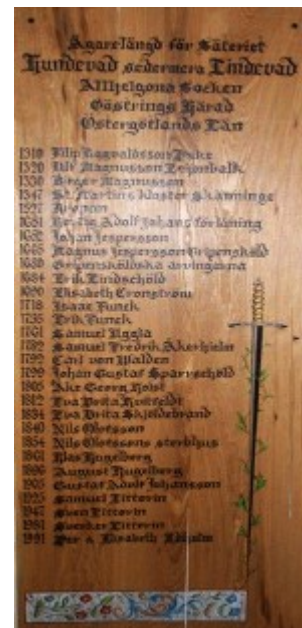 Ägarelängd för Säteriet
Hundevad sedermera Lindevad
Allhelgona Socken
Göstrings Härad
Östergötlands Län
1310 Filip Ragvaldsson Puke
1320 Ulf Magnusson
1330 Birger Magnusson
1347 St. Martins kloster Skänninge
1527 Kronan
1651 Adolf Johans förläning
1652 Johan Jespersson
1665 Magnus Jespersson Gripensköld
1680 Gripensköldska arvingarna
1684 Erik Lindschöld
1690 Elisabeth Cronström
1718 Isaac Funck
1735 Erik Funck
1761 Samuel Uggla
1782 Samuel Fredrik Åkerhielm
1792 Carl von Walden
1799 Johan Gustaf Sparrschöld
1805 Åke Georg
1812 Eva Brita
1834 Eva Brita Skjöldebrand
1840 Nils Olofsson
1854 Nils Olofssons sterbhus
1861 Klas Hugelberg
1896 August Hugelberg
1905 Gustaf Adolf Johansson
1925 Samuel Littorin
1947 Sven Littorin
1981 Sverker Littorin
1991 Per & Elisabeth